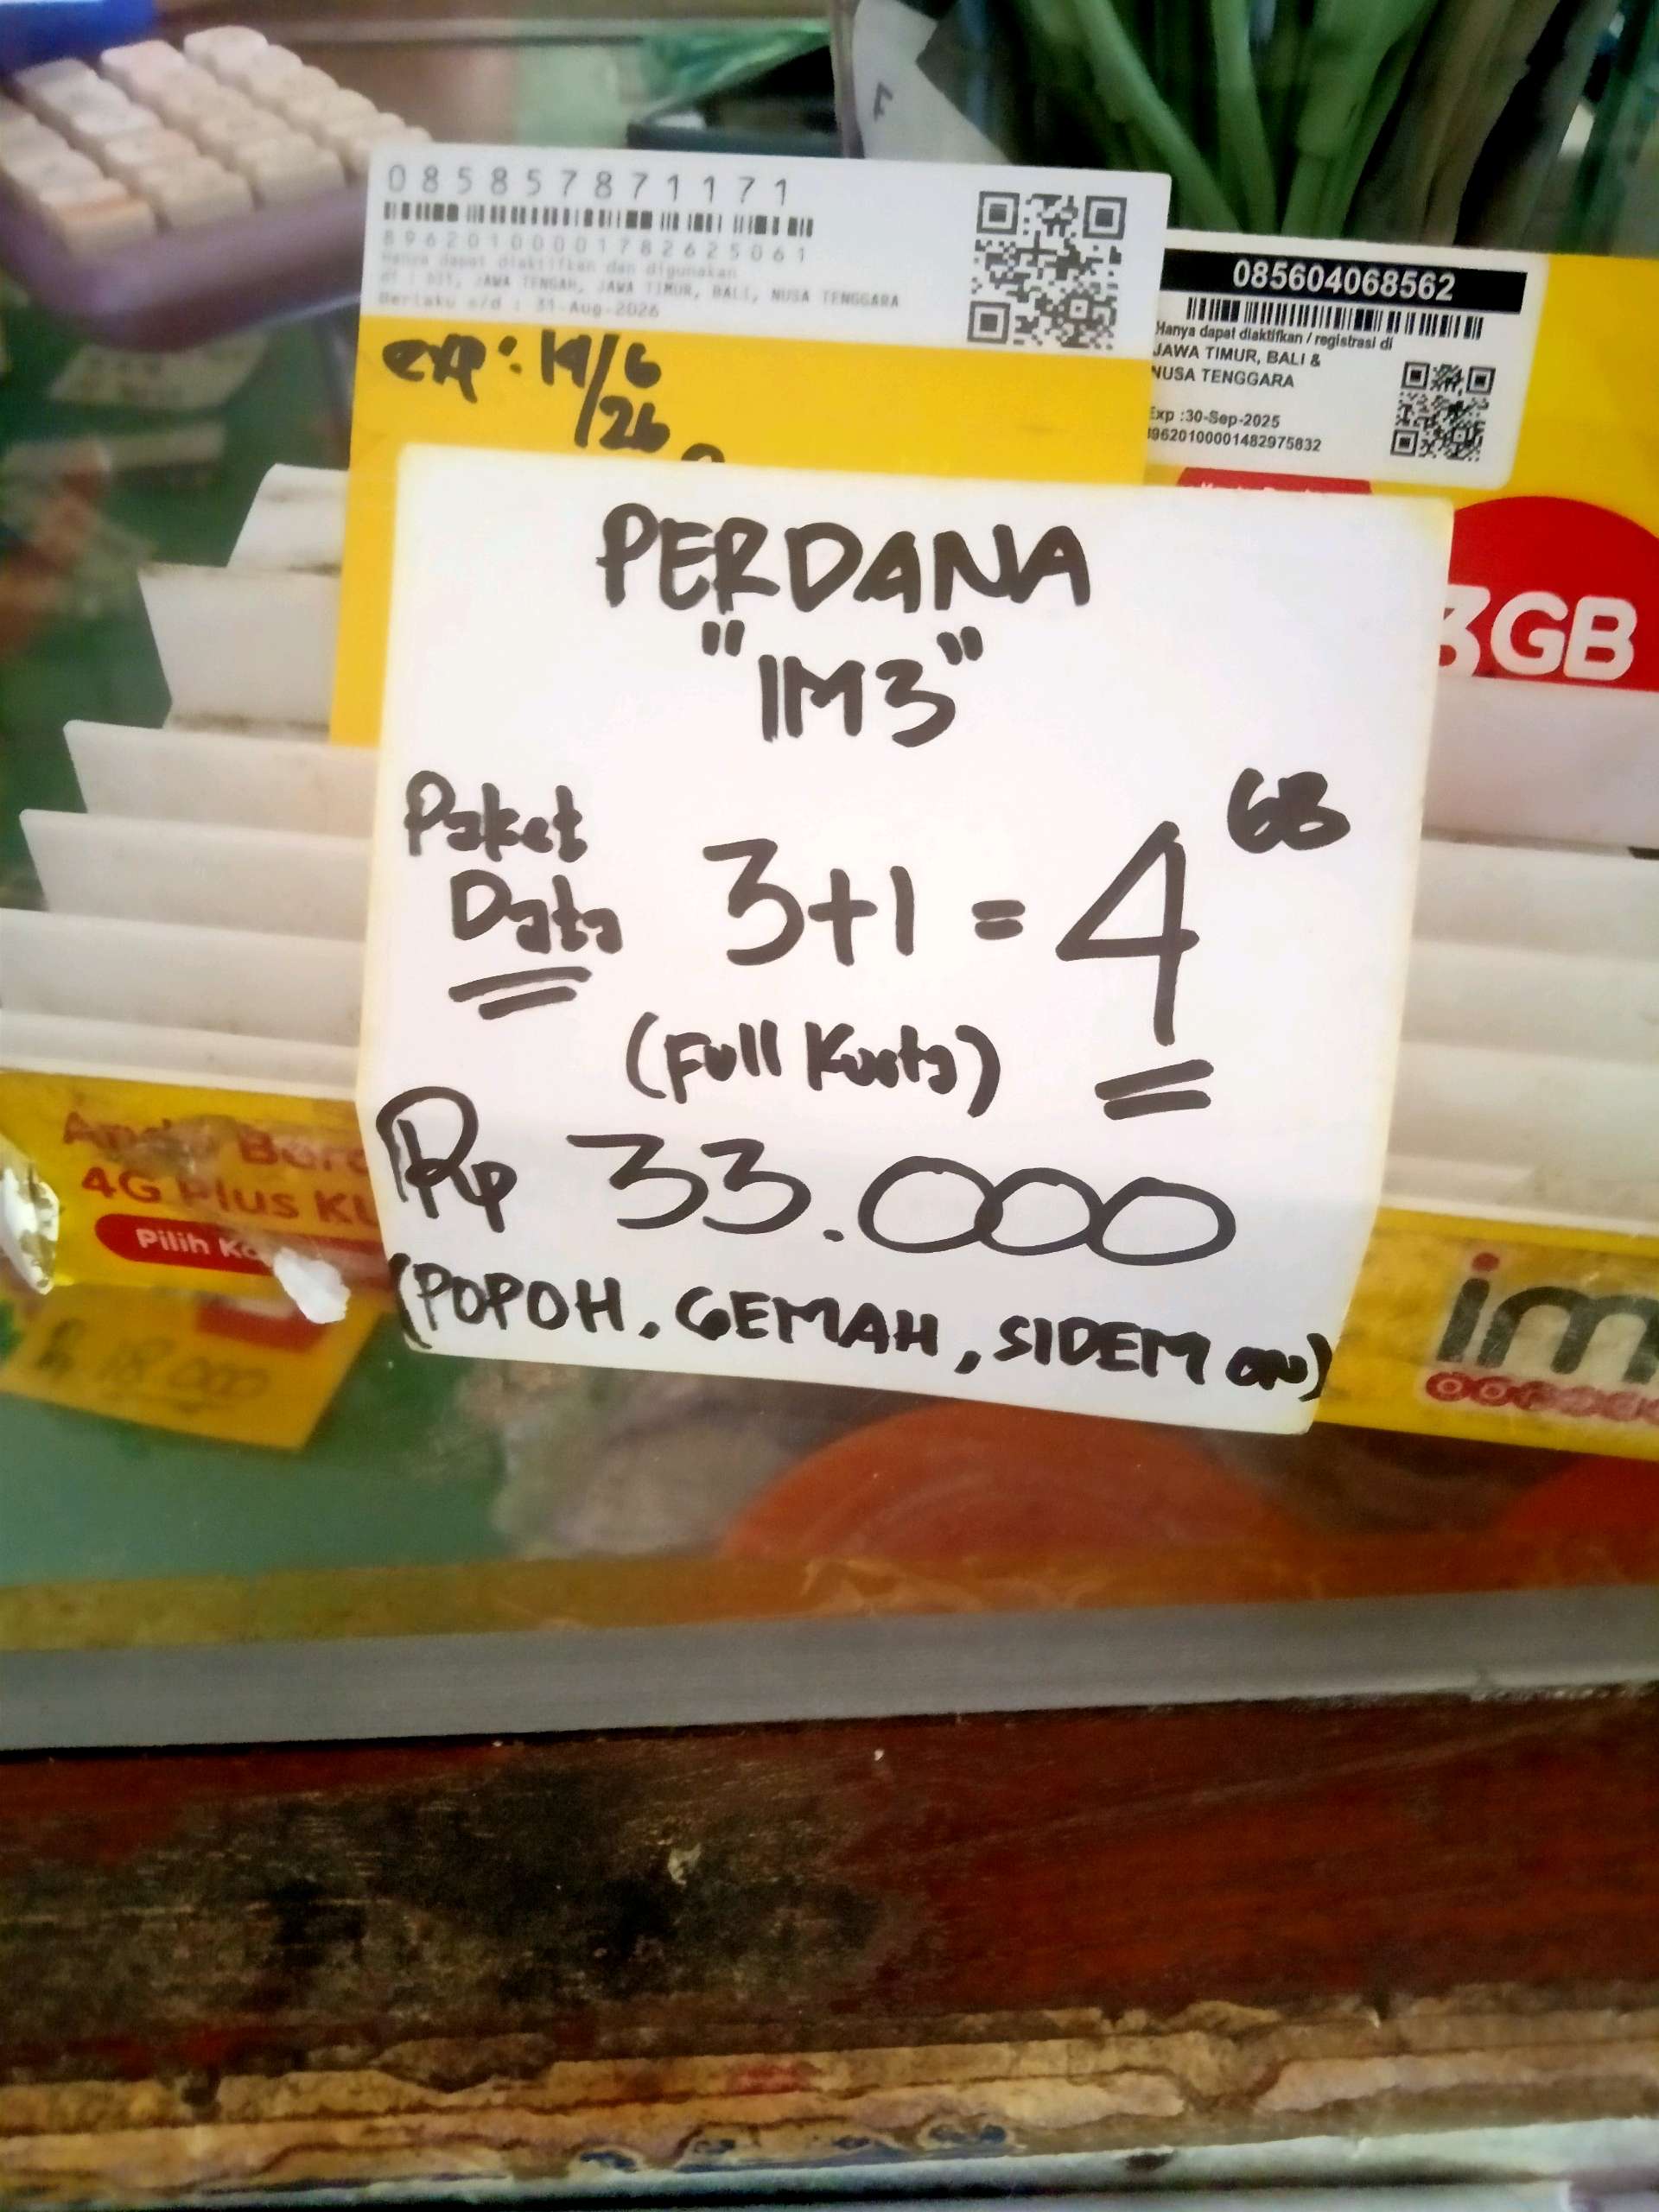 085857871171
89620100001782625061
Hanya dapat diaktifkan dan digunakan
di : JAWA TENGAH, JAWA TIMUR, BALI, NUSA TENGGARA
Berlaku s/d : 31-Aug-2026
exp : 19/6
/26
085604068562
Hanya dapat diaktifkan / registrasi di
JAWA TIMUR, BALI &
NUSA TENGGARA
Exp :30-Sep-2025
3GB
PERDANA
"IM3"
Paket
Data 3+1 = 4 GB
(Full Kuota)
Rp 33.000
(POPOH, GEMAH, SIDEM ON)
4G Plus
Pilih
im
Rp 18.000